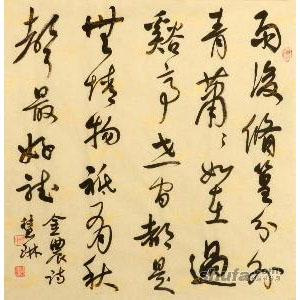 雨後脩篁分外
青蕭〻如在過
谿亭世間都是
無情物祇有秋
聲最好聽
金農詩